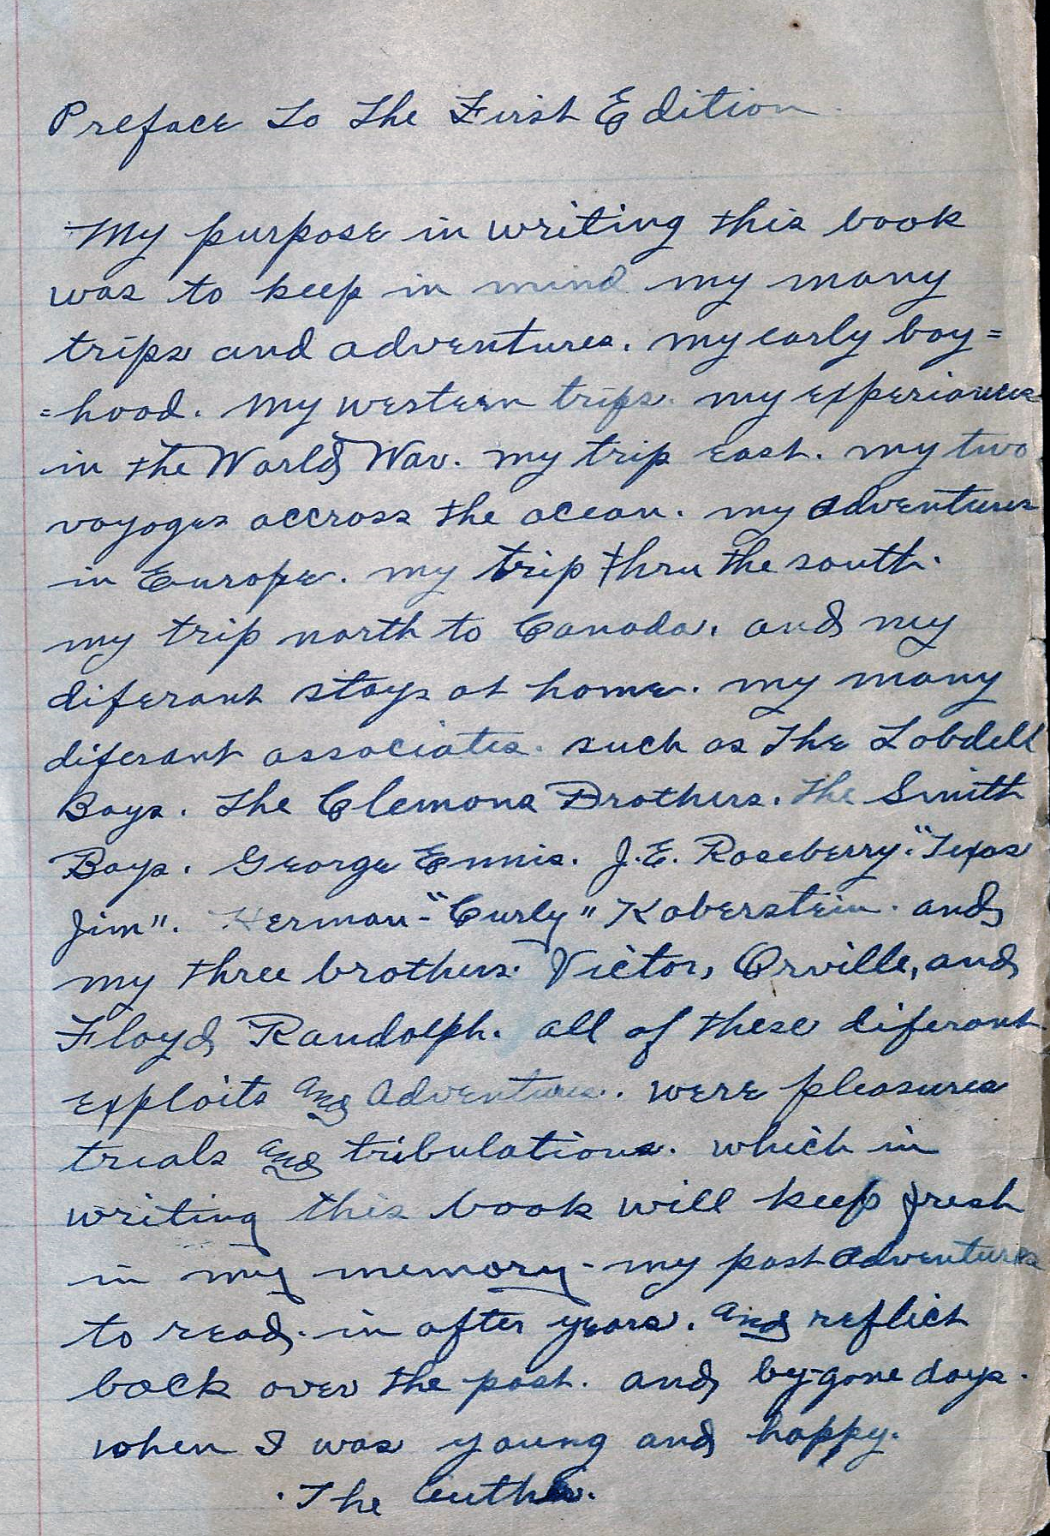 Preface To The First Edition
My purpose in writing this book
was to keep in mind my many
trips and adventures. my early boy=
=hood. my western trips. my experiances
in the World War. my trip east. my two
voyages accross the ocean. my adventures
in Europe. my trip thru the south.
my trip north to Canada. and my
diferant stays at home. my many
diferant associates. such as The Lobdell
Boys. The Clemons Brothers. The Smith
Boys. George Ennis. J.E. Roseberry. "Texas
Jim". Herman-"Curly" Koberstein. and
my three brothers. Victor, Orville, and
Floyd Randolph. all of these diferant
exploits and adventures. were pleasures
trials and tribulations. which in
writing this book will keep fresh
in my memory - my past adventures
to read. in after years. and reflect
back over the past. and by-gone days.
when I was young and happy.
. The Author.